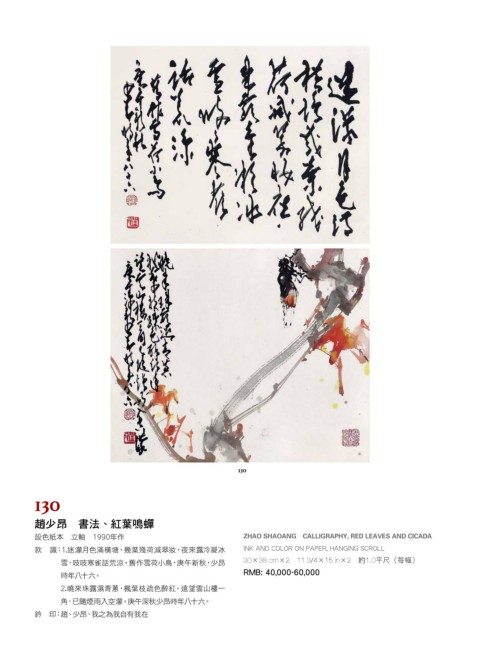 迷濛月色滿
橫塘幾葉殘
荷減翠妝夜
來露冷凝冰
雪吱吱寒雀
話荒涼
舊作雪荷小鳥
庚午新秋
少昂時年八十六
130
130
趙少昂　書法、紅葉鳴蟬
設色紙本　立軸　1990年作
款　識：1.迷濛月色滿橫塘，幾葉殘荷減翠妝，夜來露冷凝冰
雪，吱吱寒雀話荒涼，舊作雪荷小鳥，庚午新秋，少昂
時年八十六。
2.曉來珠露濕青蔥，楓葉枝疏色醉紅。遠望雲山樓一
角，已隨煙雨入空濛。庚午深秋少昂時年八十六。
鈐　印：趙、少昂、我之為我自有我在
ZHAO SHAOANG　CALLIGRAPHY, RED LEAVES AND CICADA
INK AND COLOR ON PAPER, HANGING SCROLL
30×38 cm×2　11 3/4×15 in×2　約1.0平尺（每幅）
RMB: 40,000-60,000